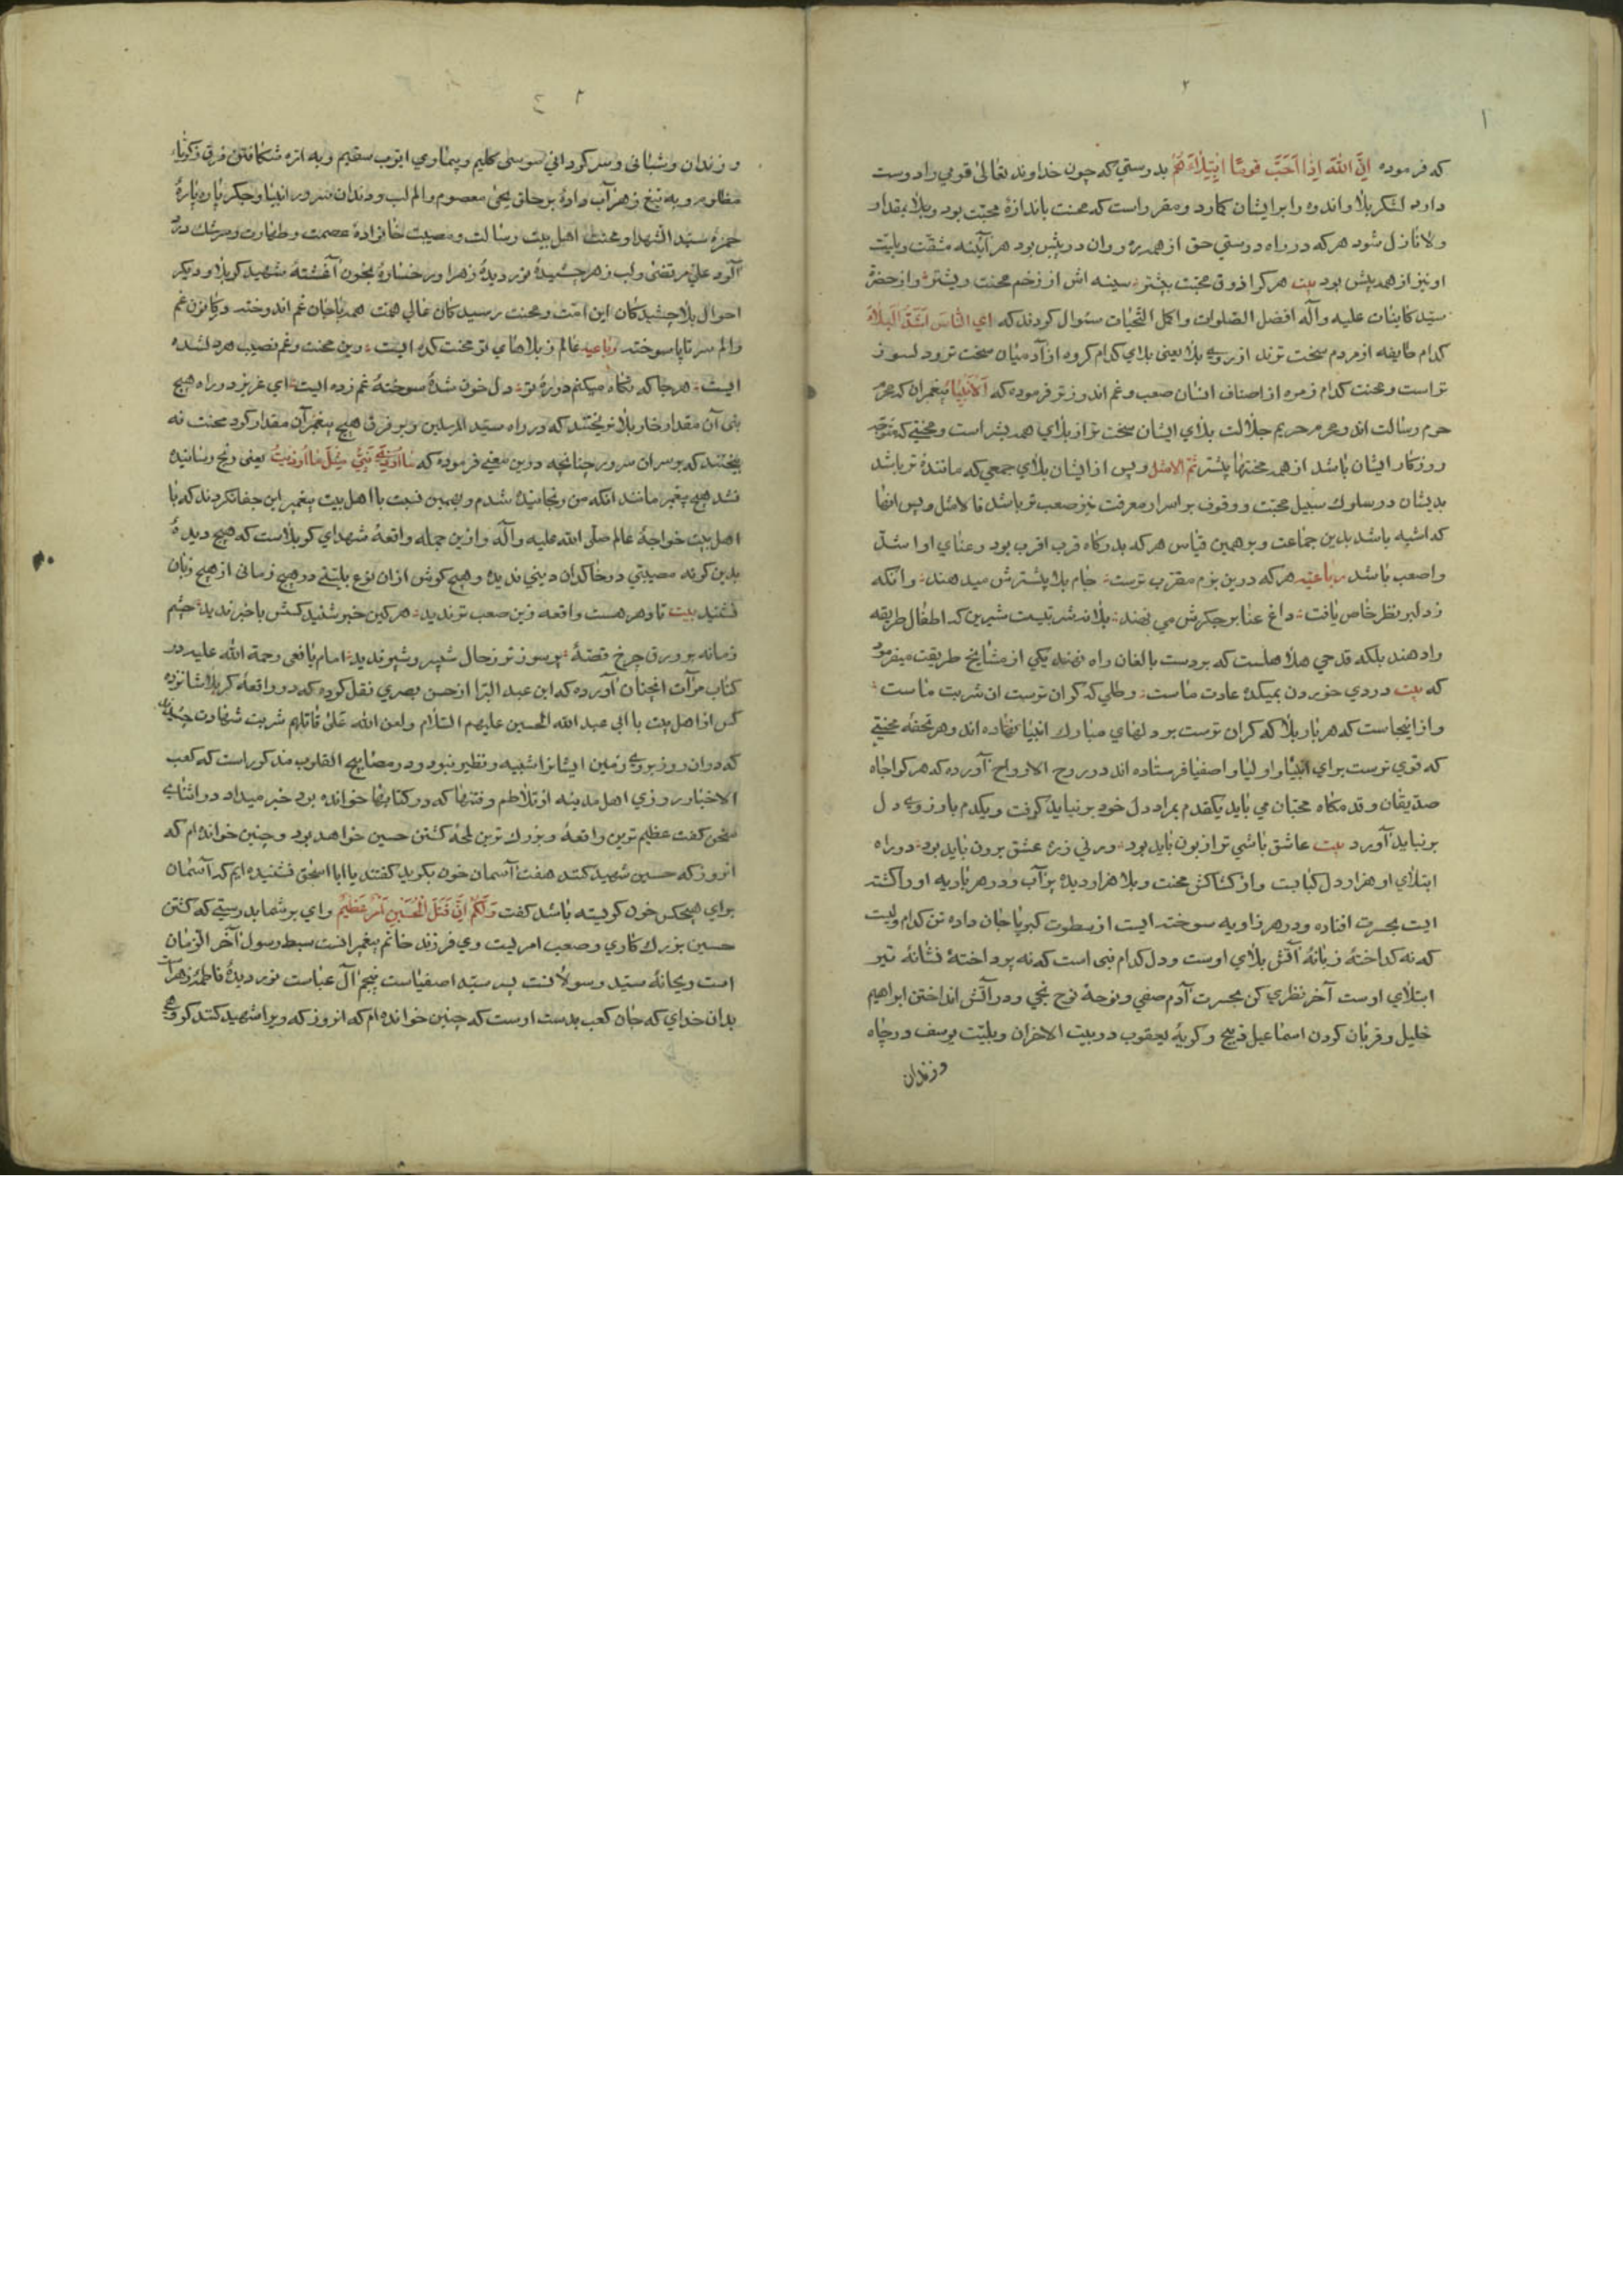 ۲
۱
که فرموده اِنَّ اللّٰهَ اِذَا اَحَبَّ قَومًا اِبتِلاءَهُم بدرستي که چون خداوند تعالیٰ قومي را دوست
دارد لشکر بلا و اندوه را بر ایشان کمارد و مقرر است که محنت باندازهٔ محبّت بود و بلا بمقدار
ولا نازل شود هر که در راه دوستي حق از همه ره روان در پیش بود هر آینه مشقّت و بلیّت
او نیز از همه بیش بود بیت هر کرا ذوق محبّت بیشتر سینه اش از زخم محنت ریشتر و از حضرة
سیّد کاینات علیه و آله افضل الصّلوات و اکمل التّحیات سئوال کردند که اي النّاس اشدّ البلاء
کدام طایفه از مردم سخت ترند از روی بلا یعنی بلاي کدام کروه از آدمیان سخت تر و دلسوز
تر است و محنت کدام زمره از اصناف انسان صعب و غم اندوزتر فرموده که الانبیاء پیغمبران که محرم
حرم رسالت اند و محرم حریم جلالت بلاي ایشان سخت تر از بلاي همه بشر است و محنتي که متوجّه
روزکار ایشان باشد از همه محنتها بیشتر ثمّ الامثل و پس از ایشان بلاي جمعي که مانندهٔ تر باشد
بدیشان در سلوك سبیل محبّت و وقوف بر اسرار معرفت نیز صعب تر باشد فالامثل و پس انها
که اشبه باشد بدین جماعت و برهمین قیاس هر که بدرکاه قرب اقرب بود و عناي او اشدّ
و اصعب باشد رباعیه هر که درین بزم مقرّب ترست جام بلا بیشترش میدهند وانکه
ز دلبر نظر خاص یافت داغ عنا بر جکرش می نهند بلا نه شربتیست شیرین که اطفال طریقه
را دهند بلکه قدحي هلاهلست که بر دست بالغان راه نهند یکي از مشایخ طریقت میفرمود
که بیت دردي خوردن بمیکده عادت ماست رطلي که کران ترست ان شربت ماست
و از اینجاست که هر بار بلا که کران ترست بر دلهاي مبارك انبیا نهاده اند و هر تحفه محنتي
که قوي ترست براي انبیا و اولیا و اصفیا فرستاده اند در روح الارواح آورده که هر کرا جاه
صدّیقان و قدمکاه محبّان مي باید یکقدم بمراد دل خود برنباید کرفت و یکدم بارزوی دل
برنباید آورد بیت عاشق باشي تو از بون باید بود ورنی ز ره عشق برون باید بود در راه
ابتلاي او هزار دل کبابت و از کشاکش محنت و بلا هزار دیده پر آب و در هر بادیه او را کشته
ایت بحسرت افتاده و در هر زاویه سوخته ایست از سطوت کبریا جان داده تن کدام ولیست
که نه کداختهٔ زبانهٔ آتش بلاي اوست و دل کدام نبی است که نه پرداختهٔ نشانهٔ تیر
ابتلاي اوست آخر نظري کن بحسرت آدم صفي و نوحهٔ نوح نجي و در آتش انداختن ابراهیم
خلیل و قربان کردن اسماعیل ذبیح و کریهٔ یعقوب در بیت الاحزان و بلیّت یوسف در چاه
و زندان
و زندان و شبانی و سرکرداني موسی کلیم و بیماري ایّوب سقیم و به ارّه شکافتن فرق زکریّاء
مظلوم و به تیغ زهر آب دادهٔ بر حلق یحیٰ معصوم و الم لب و دندان سرور انبیا و جکر پاره پارهٔ
حمزه سیّد الشهدا و محنت اهل بیت رسالت و مصیبت خانوادهٔ عصمت و طهارت و سرشك درد
آلود علي مرتضیٰ و لب زهر چشیدهٔ نور دیدهٔ زهرا و رخسارهٔ بخون آغشتهٔ شهید کربلا و دیکر
احوال بلا چشیدکان این امّت و محنت رسیدکان عالي همّت همه با جان غم اندوخته و کانون غم
و الم سر تا پا سوخته رباعیه عالم ز بلاهاي تو محنت کده ایست وین محنت و غم نصیب هر دلشده
ایست هر جا که نکاه میکنم در ره تو دل خون شدهٔ سوختهٔ غم زده ایست اي عزیز در راه هیچ
نبی آن مقدار خار بلا نریختند که در راه سیّد المرسلین و بر فرق هیچ پیغمبر آن مقدار کرد محنت نه
بیختند که بر سران سرور چنانچه درین معنی فرموده که مَا اُوذِيَ نَبِيٌّ مِثلَ مَا اُوذِیتُ یعنی رنج رسانیده
نشد هیچ پیغمبر مانند انکه من رنجانیده شدم و بهمین نسبت با اهل بیت پیغمبر این جفا نکردند که با
اهل بیت خواجهٔ عالم صلّی الله علیه و آله و ازین جمله واقعهٔ شهداي کربلاست که هیچ دیدهٔ
بدین کونه مصیبتي در خاکدان دیني ندیده و هیچ کوش ازان نوع بلیّتی در هیچ زمانی از هیچ زبان
نشنید بیت تا دهر هست واقعه زین صعب تر ندید هر کین خبر شنید کسش با خبر ندید چشم
زمانه بر ورق چرخ قصّهٔ پرسوزتر ز حال شبیر و شبر ندید امام یافعی رحمة الله علیه در
کتاب مرآت الجنان آورده که ابن عبد البرّ از حسن بصري نقل کرده که در واقعهٔ کربلا شانزده
کس از اهل بیت با ابی عبد الله الحسین علیهم السّلام و لعن الله علیٰ قاتلهم شربت شهادت چشیدند
که دران روز بروی زمین ایشانرا شبیه و نظیر نبود و در مصابیح القلوب مذکور است که کعب
الاخبار روزي اهل مدینه از تلاطم و فتنها که در کتابها خوانده بود خبر میداد در اثنای
سخن کفت عظیم ترین واقعهٔ و بزرك ترین ملحمهٔ کشتن حسین خواهد بود و چنین خوانده ام که
انروز که حسین شهید کنند هفت آسمان خون بکرید کفتند یا ابا اسحٰق نشنیده ایم که آسمان
براي هیچکس خون کریسته باشد کفت وَیلَکُم اِنَّ قَتلَ الحُسَینِ اَمرٌ عَظِیمٌ واي بر شما بدرستي که کشتن
حسین بزرك کاري و صعب امریست وي فرزند خاتم پیغمبرانست سبط رسول آخر الزّمان
است ریحانهٔ سیّد رسولانست پسر سیّد اصفیاست پنجم آل عباست نور دیدهٔ فاطمهٔ زهراست
بدان خداي که جان کعب بدست اوست که چنین خوانده ام که انروز که ویرا شهید کنند کروهی